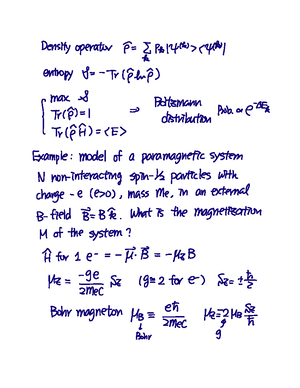 Density operator ρ̂ = Σ_k P_k |ψ^(k)> <ψ^(k)|
entropy S = - Tr (ρ̂ ln ρ̂)
max S
Tr(ρ̂) = 1 ⇒ Boltzmann distribution Prob. ∝ e^(-βE_k)
Tr(ρ̂ Ĥ) = <E>
Example: model of a paramagnetic system
N non-interacting spin-1/2 particles with
charge -e (e>0), mass me, in an external
B-field B⃗ = B k̂. What is the magnetization
M of the system?
Ĥ for 1 e⁻ = -μ⃗·B⃗ = -μz B
μz = -ge/2mec Sz (g≅2 for e⁻) Sz = ±ħ/2
Bohr magneton μB ≡ eħ/2mec μz = 2 μB Sz/ħ
Bohr g